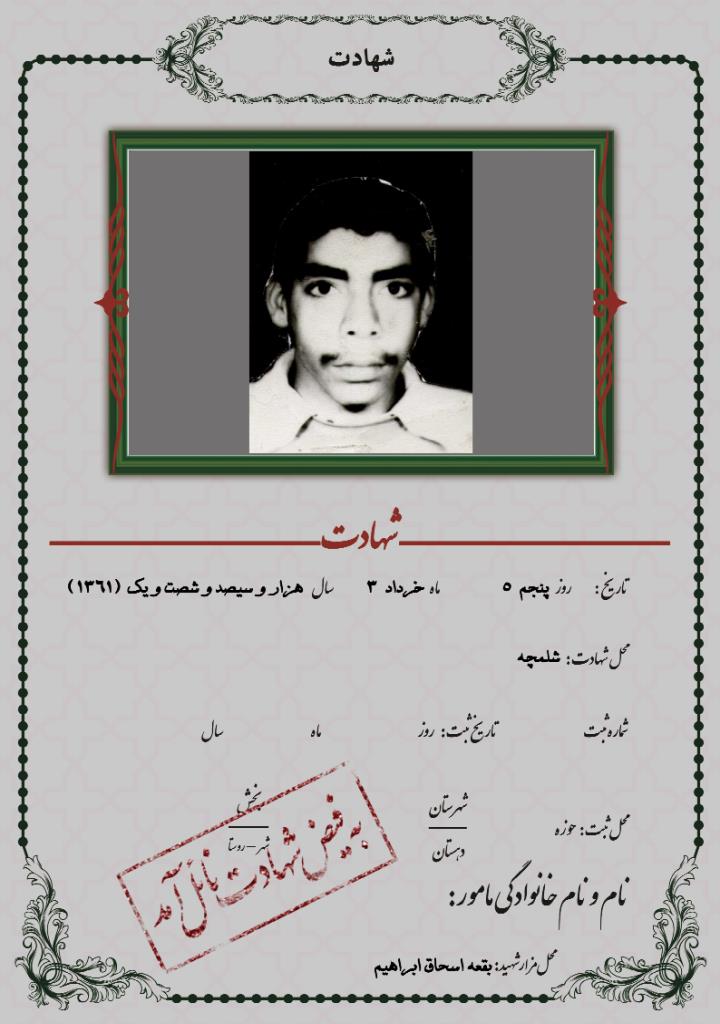 شهادت
شهادت
تاریخ: روز پنجم ۵ ماه خرداد ۳ سال هزار و سیصد و شصت و یک (۱۳۶۱)
محل شهادت: شلمچه
شماره ثبت تاریخ ثبت: روز ماه سال
محل ثبت: حوزه شهرستان بخش
دهستان شهر-روستا
به فیض شهادت نائل آمد
نام و نام خانوادگی مامور:
محل مزار شهید: بقعه اسحاق ابراهیم